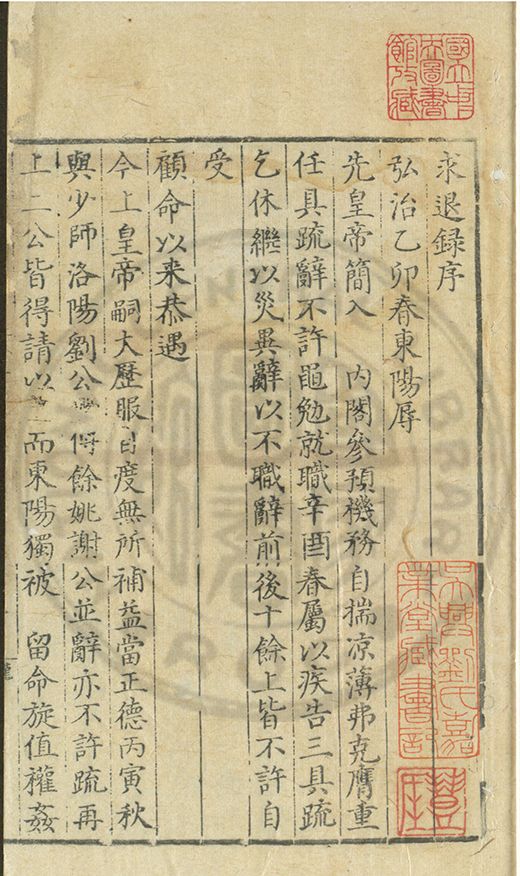 求退録序
弘治乙卯春東陽辱
先皇帝簡入　内閣參預機務自揣凉薄弗克膺重
任具疏辭不許黽勉就職辛酉春屬以疾告三具疏
乞休繼以災異辭以不職辭前後十餘上皆不許自
受
顧命以来恭遇
今上皇帝嗣大歷服自度無所補益當正德丙寅秋
與少師洛陽劉公傅餘姚謝公並辭亦不許疏再
上二公皆得請以而東陽獨被　留命旋值權姦
國立中
央圖書
館收藏
吳興劉氏嘉
業堂藏書印